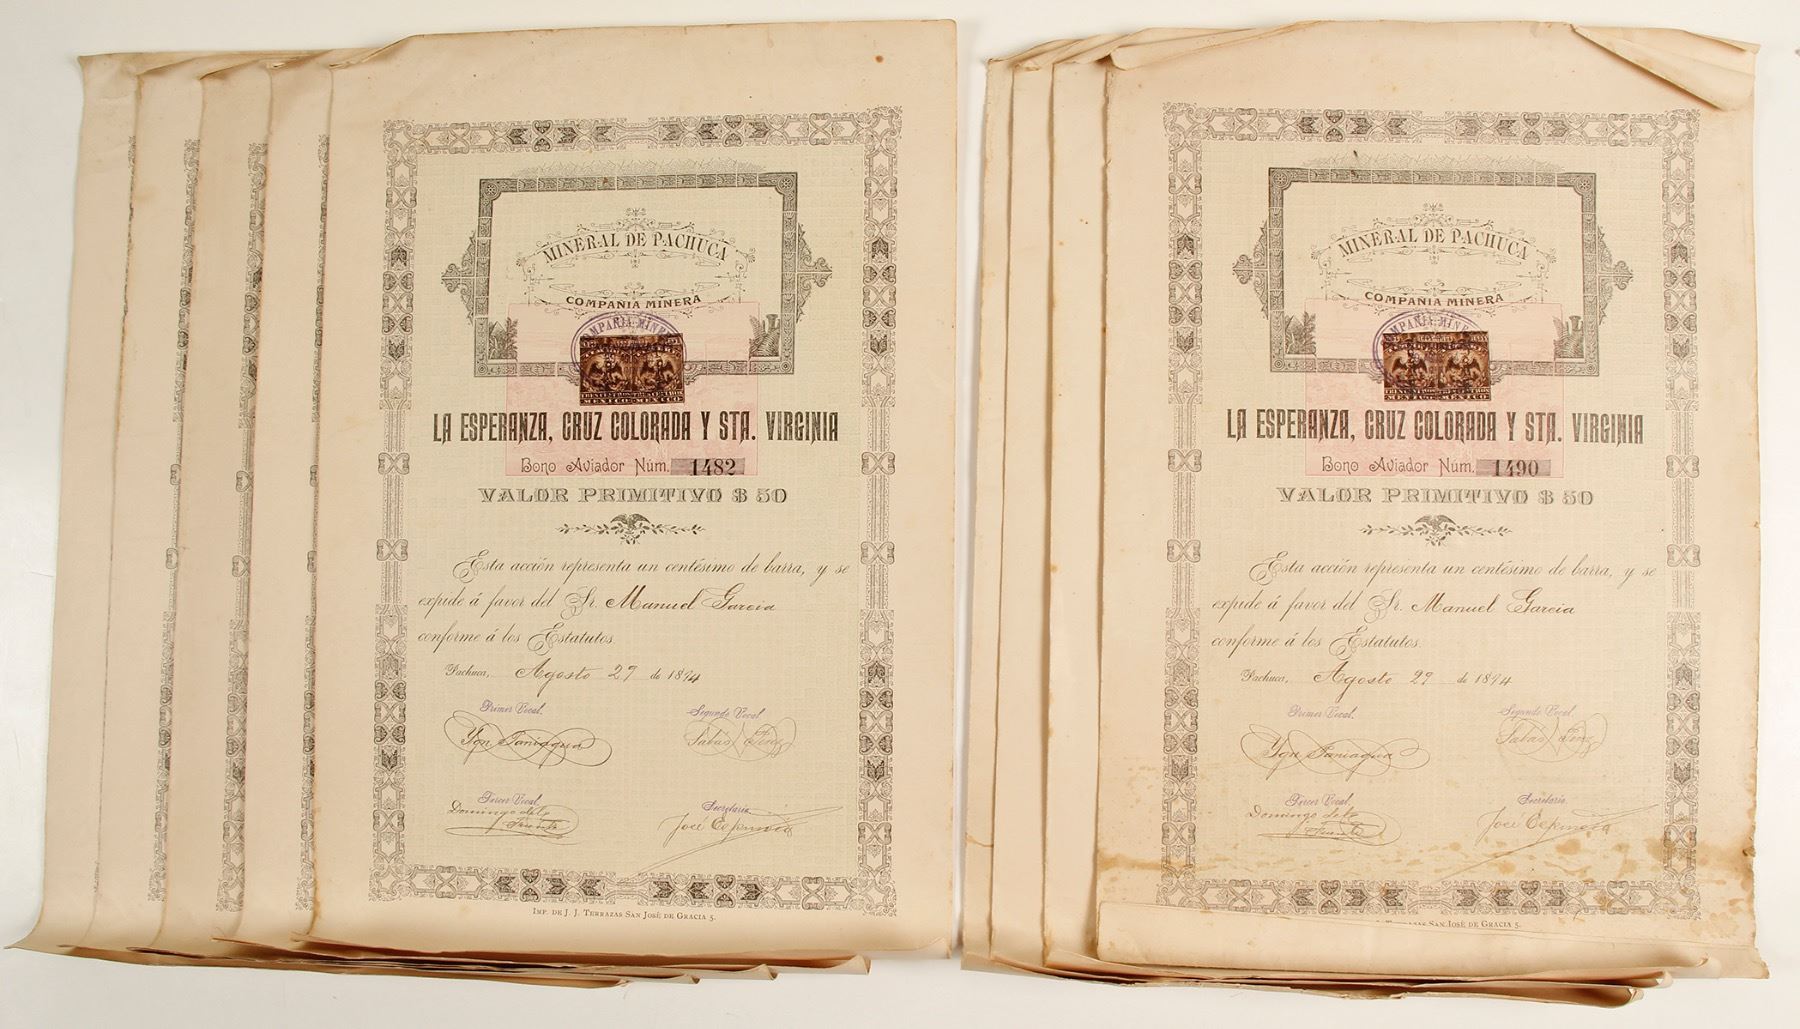 MINERAL DE PACHUCA
COMPAÑIA MINERA
COMPAÑIA MINERA
MEXICO MEXICO
LA ESPERANZA, CRUZ COLORADA Y STA. VIRGINIA
Bono Aviador Núm. 1482
VALOR PRIMITIVO $ 50
Esta acción representa un centésimo de barra, y se
expide á favor del Sr. Manuel Garcia
conforme á los Estatutos
Pachuca, Agosto 29 de 1894
Primer Vocal. Segundo Vocal
Ygn Paniagua
Tercer Vocal. Secretario.
Domingo de la
Fuente José Espinosa
IMP. DE J. J. TERRAZAS SAN JOSÉ DE GRACIA 5.
MINERAL DE PACHUCA
COMPAÑIA MINERA
COMPAÑIA MINERA
MEXICO
LA ESPERANZA, CRUZ COLORADA Y STA. VIRGINIA
Bono Aviador Núm. 1490
VALOR PRIMITIVO $ 50
Esta acción representa un centésimo de barra, y se
expide á favor del Sr. Manuel Garcia
conforme á los Estatutos.
Pachuca, Agosto 29 de 1894
Primer Vocal. Segundo Vocal
Ygn Paniagua
Tercer Vocal. Secretario.
Domingo de la
Fuente José Espinosa
SAN JOSÉ DE GRACIA 5.